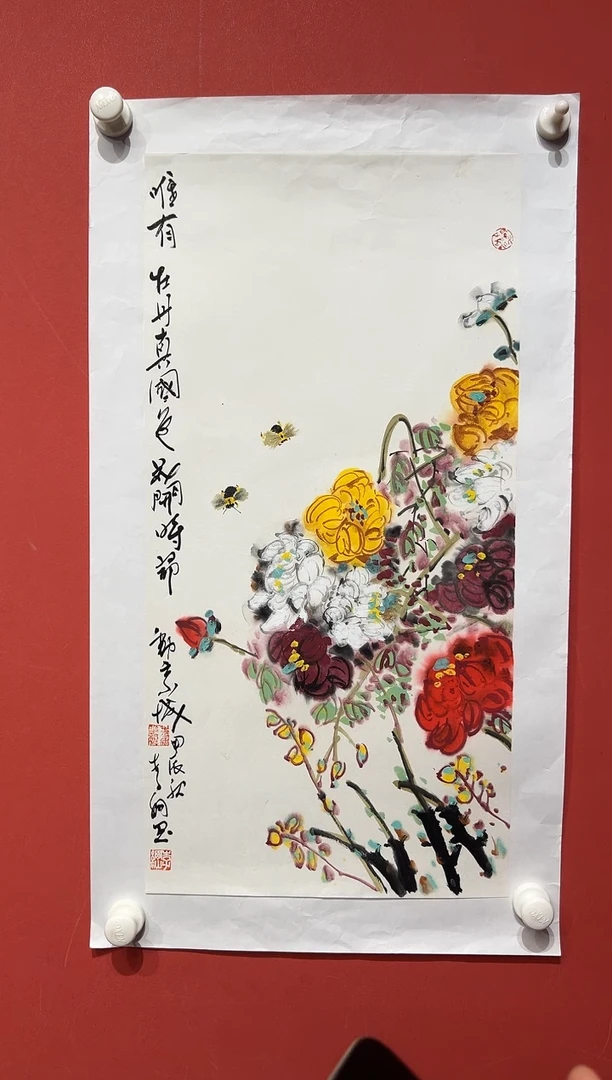 唯有牡丹真國色花開時節動京城甲辰秋